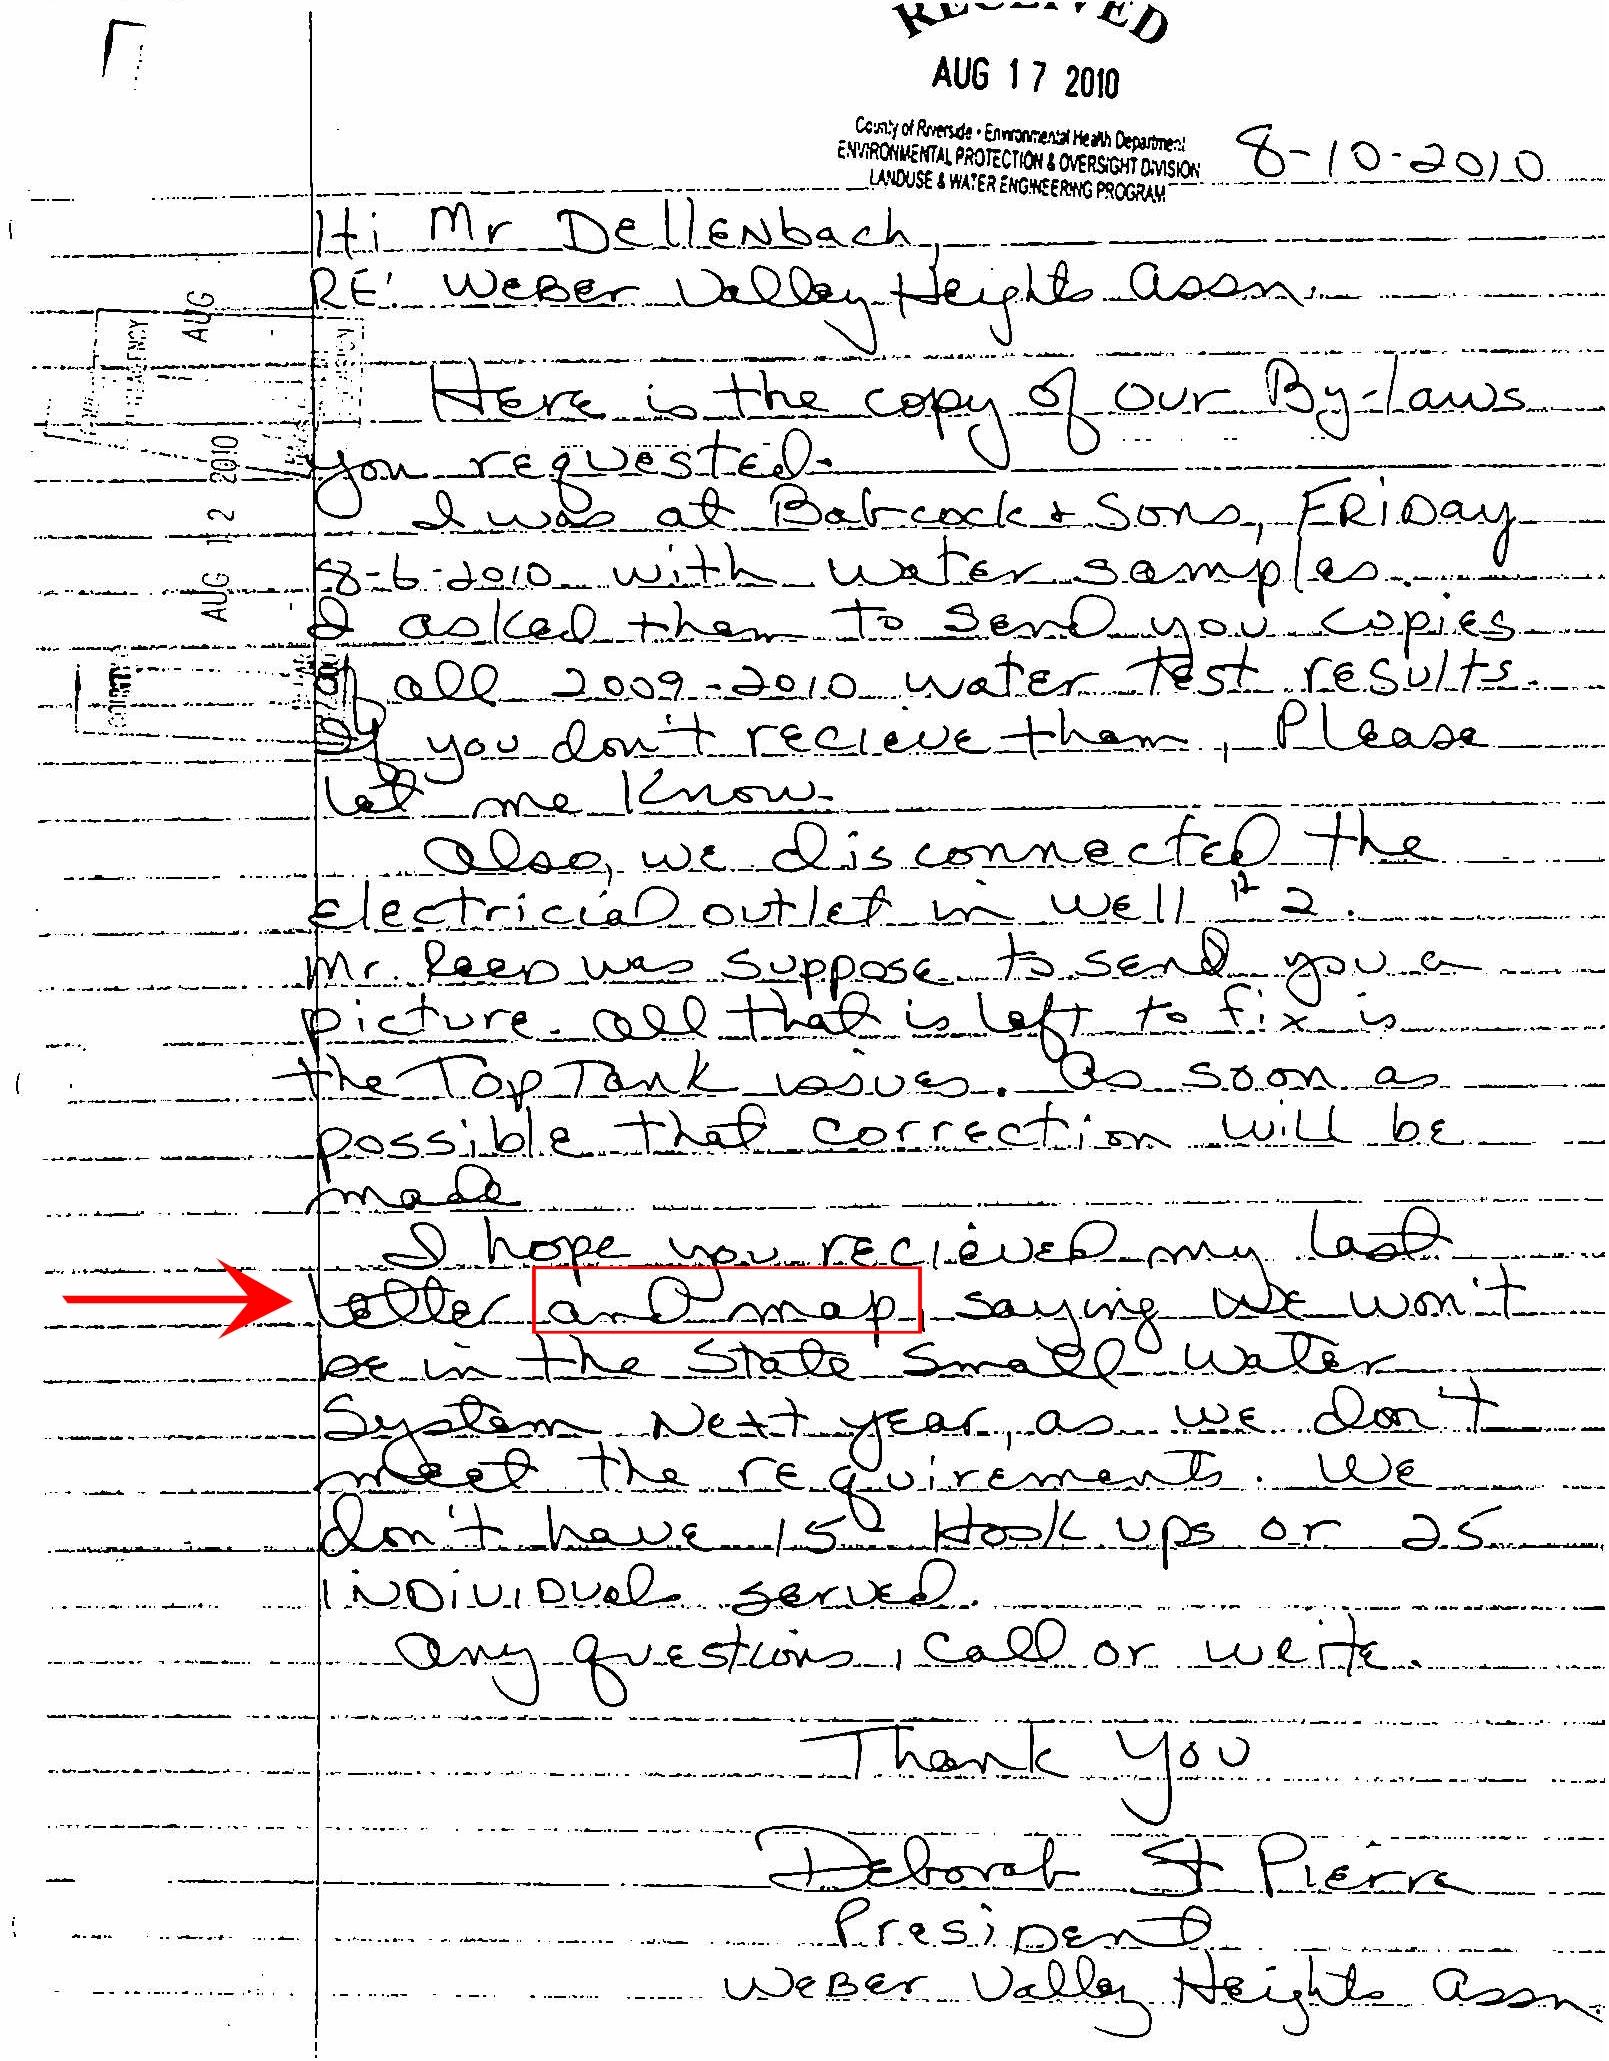 RECEIVED
AUG 17 2010
County of Riverside • Environmental Health Department
ENVIRONMENTAL PROTECTION & OVERSIGHT DIVISION
LANDUSE & WATER ENGINEERING PROGRAM
8-10-2010
Hi Mr Dellenbach,
RE: Weber Valley Heights Assn.
Here is the copy of our By-laws
you requested.
I was at Babcock & Sons, FRIDay
8-6-2010 with water samples.
I asked them to send you copies
of all 2009-2010 water test results.
If you don't recieve them, Please
let me know.
Also, we disconnected the
electricial outlet in well # 2.
Mr. Reed was suppose to send you a
picture. All that is left to fix is
the Top Tank issues. As soon as
possible that correction will be
made
I hope you recieved my last
letter and map, saying we won't
be in the State Small Water
System Next year, as we don't
meet the requirements. We
don't have 15 Hook ups or 25
individuals served.
Any questions, call or write.
Thank You
Deborah St Pierre
President
Weber Valley Heights Assn.
AUG
AUG 12 2010